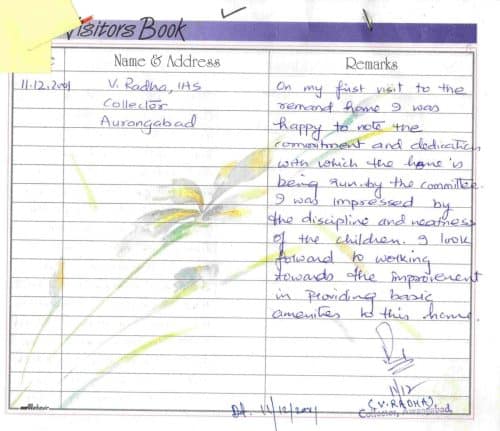 Visitors Book
Name & Address
Remarks
11.12.2001
V. Radha, IAS
Collector
Aurangabad
On my first visit to the
remand home I was
happy to note the
commitment and dedication
with which the home is
being run by the committee.
I was impressed by
the discipline and neatness
of the children. I look
forward to working
towards the improvement
in providing basic
amenities to this home.
11/12
(V. RADHA),
Collector, Aurangabad.
Dt. 11/12/2001